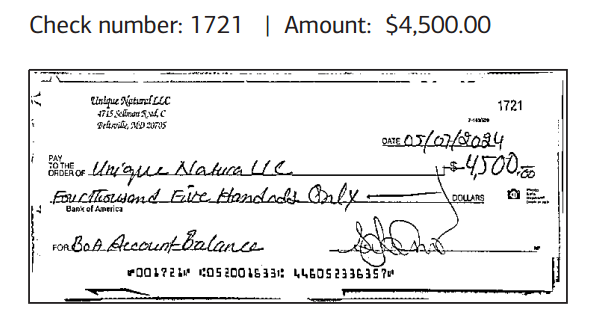 Check number: 1721 | Amount: $4,500.00
Unique Natural LLC
4715 Sellman Road, C
Beltsville, MD 20705
1721
DATE 05/07/2024
PAY TO THE ORDER OF Unique Natura LLC $ 4,500.00
Four Thousand Five Handods Only DOLLARS
Bank of America
FOR BoA Account Balance
⑈001721⑈ ⑆052001633⑆ 446052336357⑈